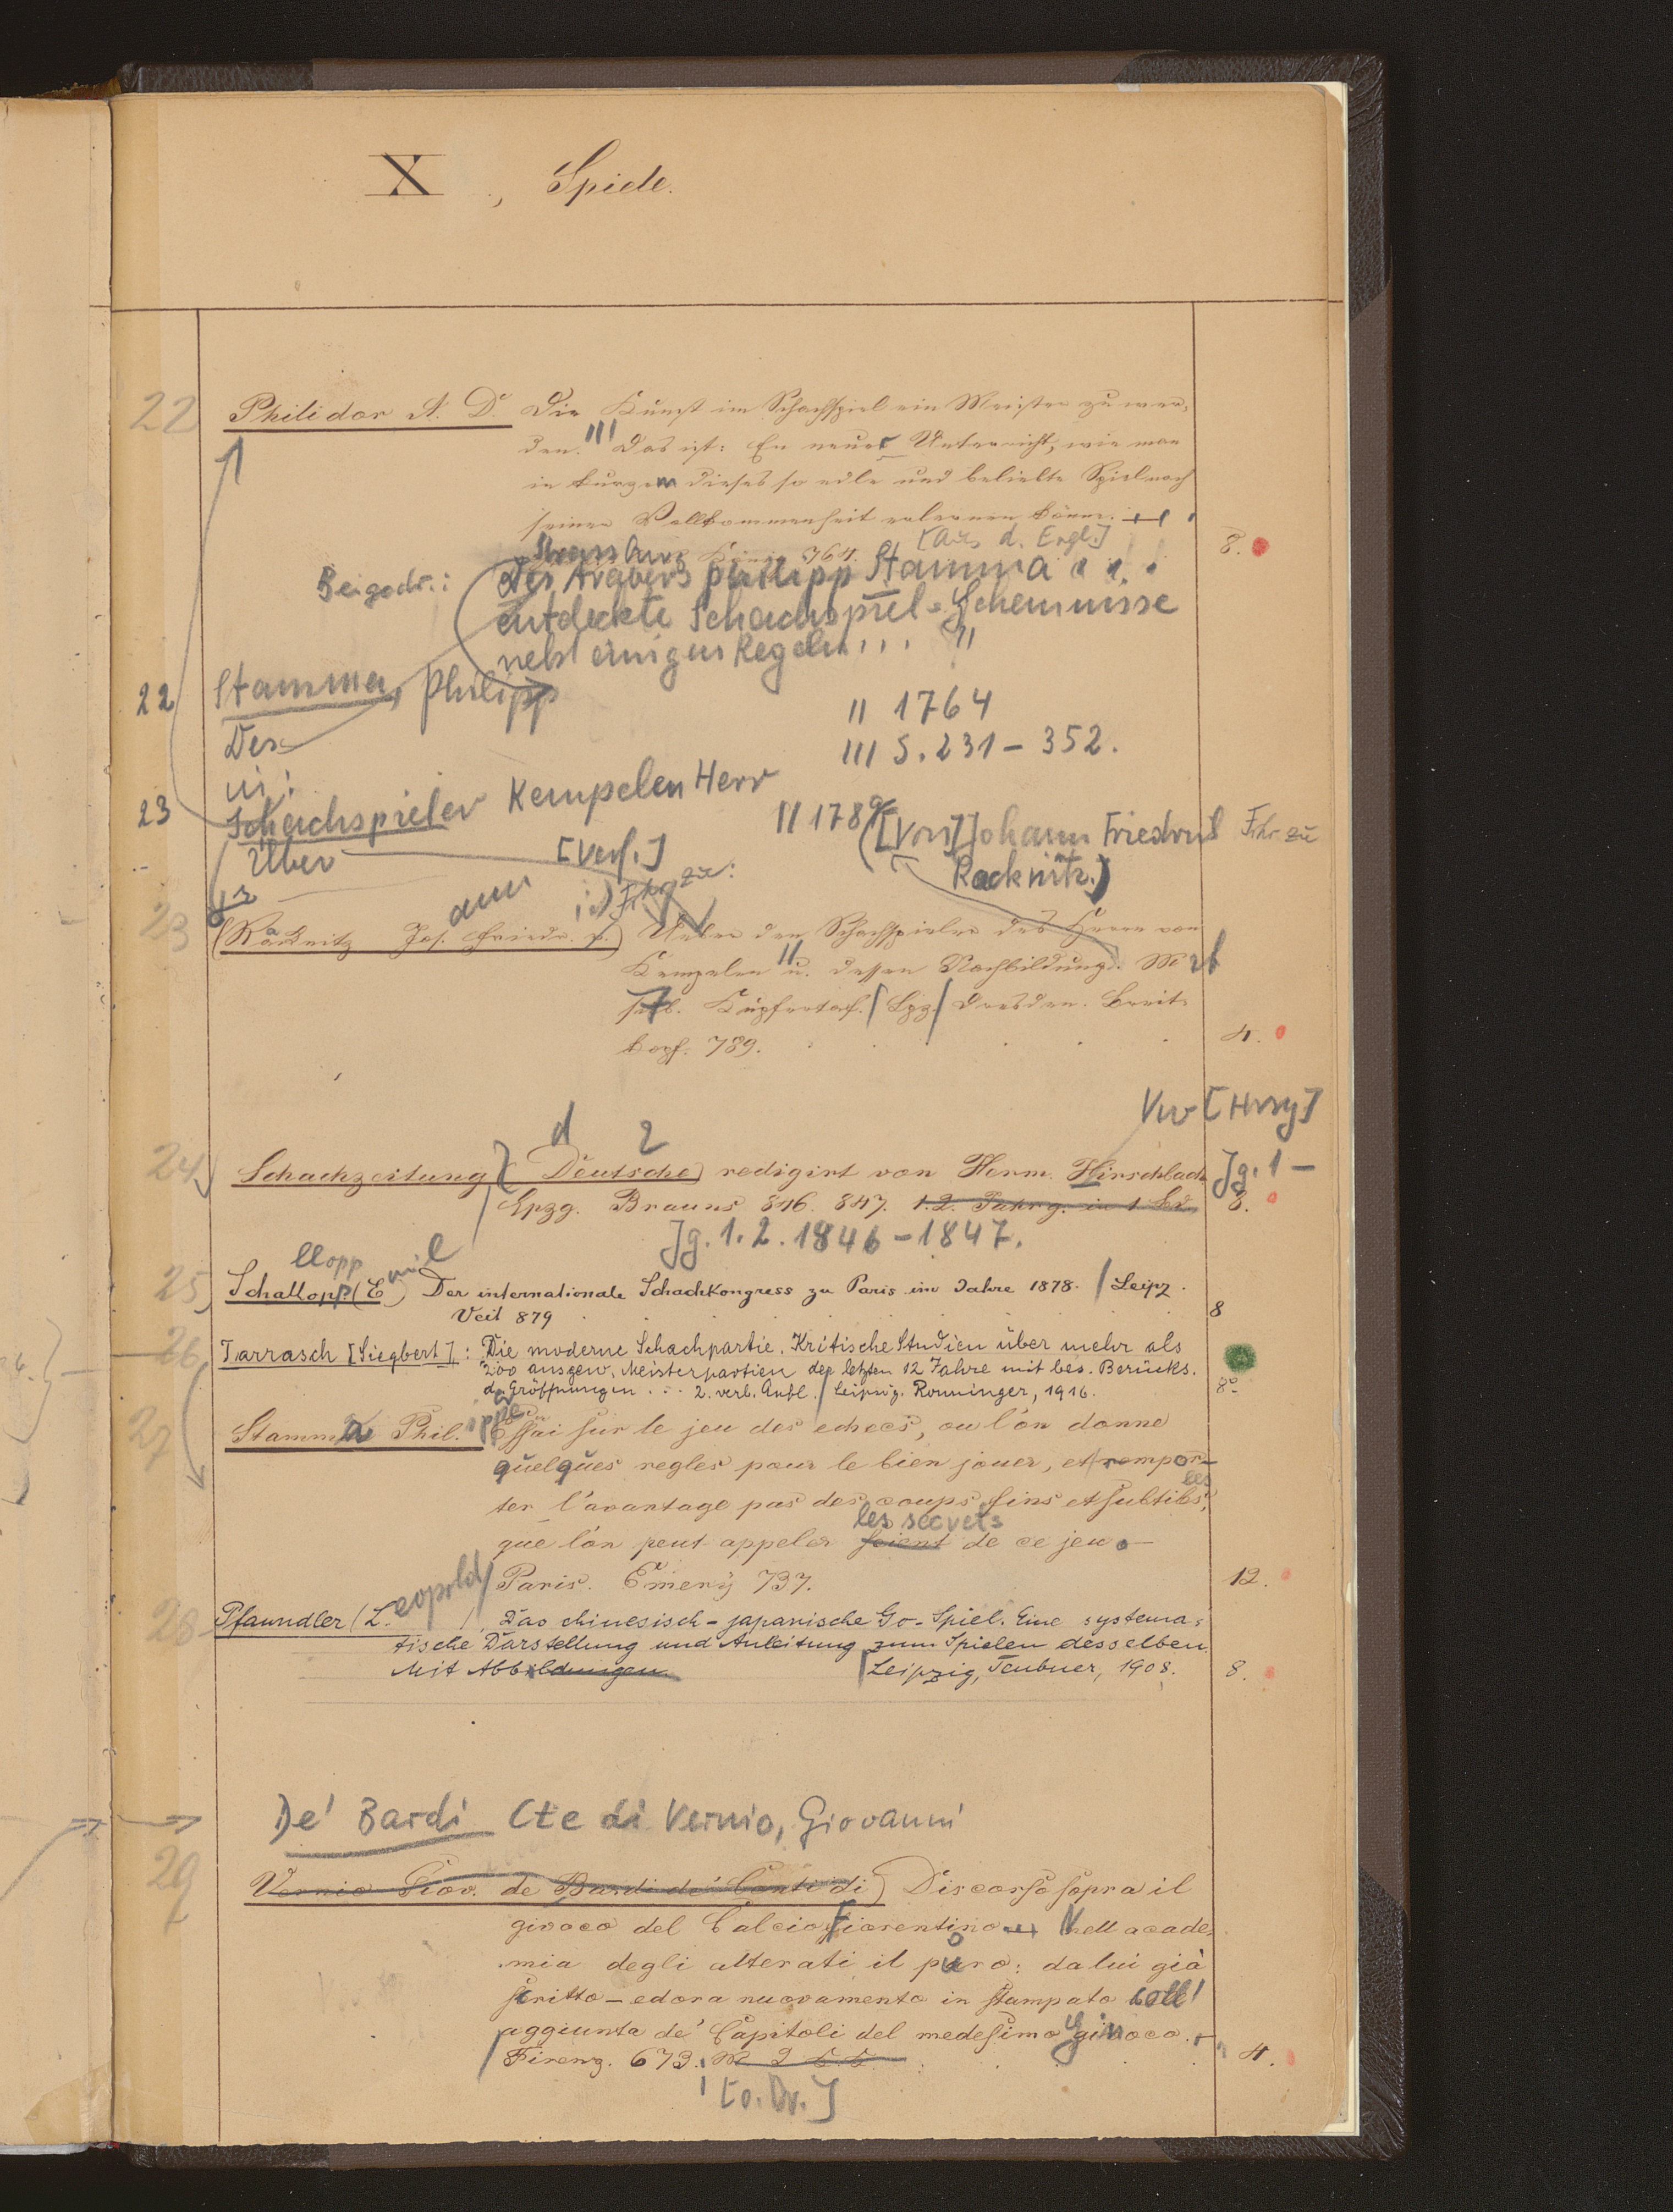 X , Spiele.
22 Philidor A. D. Die Kunst im Schachspiel ein Meister zu wer-
den. Das ist: En neuer Unterricht, wie man
in kurzem dieses so edle und beliebte Spiel nach
seiner Vollkommenheit erlernen könne.
Strassburg 764. [Aus d. Engl.] 8.
Beigedr.: Des Arabers Philipp Stamma . . .
entdeckte Schachspiel-Geheimnisse
nebst einigen Regeln . . . "
22 Stamma, Philipp
II 1764
Des
III S. 231 - 352.
in:
23 Schachspieler Kempelen Herr
II 1789 ([von] Johann Friedrich Frhr zu
Über [Verf.] Racknitz.)
Frhr zu:
23 (Racknitz Jos. Friedr. z.) Ueber den Schachspieler des Herrn von
Kempelen u. dessen Nachbildung. M
7 Kupfertaf. Lpz. Dresden. Breit-
kopf. 789. 4.
Verf [Hrsg]
d 2
24 Schachzeitung (Deutsche) redigirt von Herm. Hirschbach Jg. 1 -
Lpzg. Brauns 846. 847. 1.2. Jahrg. in 1 Bd. 8.
Jg. 1. 2. 1846 - 1847.
llopp mil
25 Schallopp (E) Der internationale Schachkongress zu Paris im Jahre 1878. Leipz.
Veit 879 8
26 Tarrasch [Siegbert]: Die moderne Schachpartie. Kritische Studien über mehr als
200 ausgew. Meisterpartien der letzten 12 Jahre mit bes. Berücks.
d. Eröffnungen . . . 2. verb. Aufl. Leipzig. Ronninger, 1916. 8°
27 Stamma Phil. ipp Essai sur le jeu des echecs, ou l'on donne
quelques regles pour le bien jouer, et rempor-
ter l'avantage par des coups fins et subtiles,
les secrets
que l'on peut appeler scient de ce jeu.
Paris. Emery 737. 12.
28 Pfaundler (L. eopold) Das chinesisch-japanische Go-Spiel. Eine systema-
tische Darstellung und Anleitung zum Spielen desselben.
Mit Abbildungen Leipzig, Teubner, 1908. 8.
De' Bardi Cte di Vernio, Giovanni
29 Vernio Giov. de Bardi de' Conti di) Discorso sopra il
givoco del Calcio Fiorentino Nell acade-
mia degli alterati il puro: da lui già
scritto - edora nuovamento in stampato coll'
aggiunta de' Capitoli del medesimo givoco.
Firenz. 673. M 2 4.
[o. Dr.]